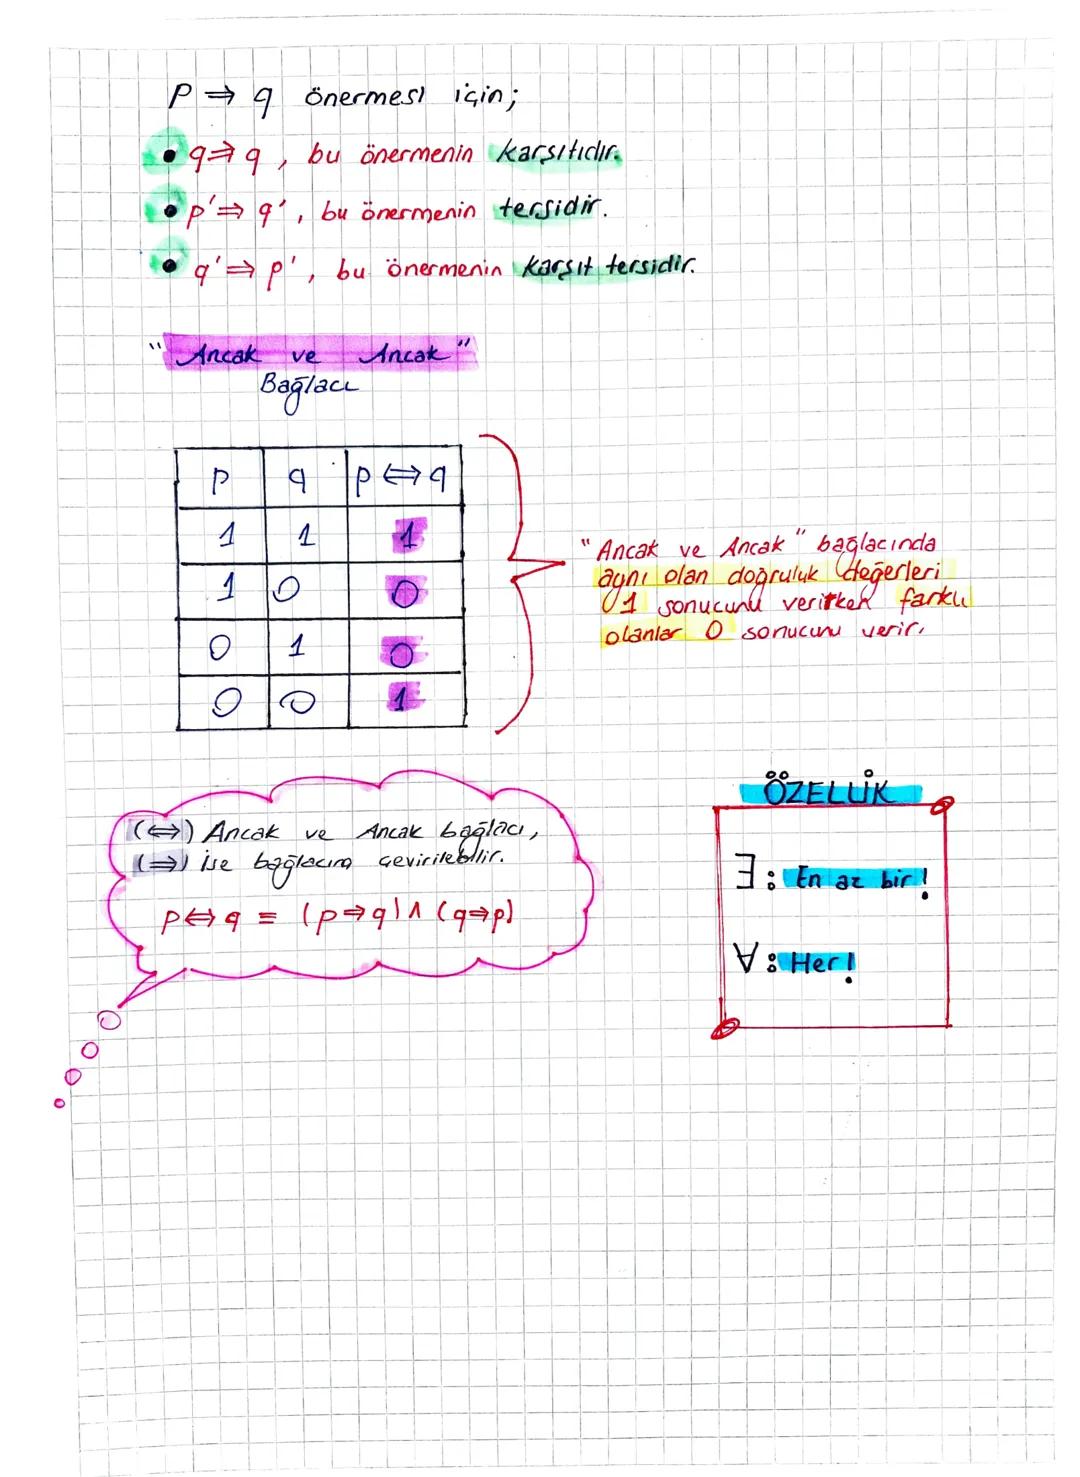 p ⇒ q önermesi için;
• q⇒q, bu önermenin karşıtıdır.
• p'⇒ q', bu önermenin tersidir.
• q'⇒ p', bu önermenin karşıt tersidir.
"Ancak ve Ancak"
Bağlacı
p q p⇔q
1 1 1
1 0 0
0 1 0
0 0 1
"Ancak ve Ancak" bağlacında
aynı olan doğruluk değerleri
1 sonucunu verirken farklı
olanlar 0 sonucunu verir.
(⇔) Ancak ve Ancak bağlacı,
(⇒) ise bağlacına çevirilebilir.
p⇔q ≡ (p⇒q) ∧ (q⇒p)
ÖZELLİK
∃: En az bir!
∀: Her!